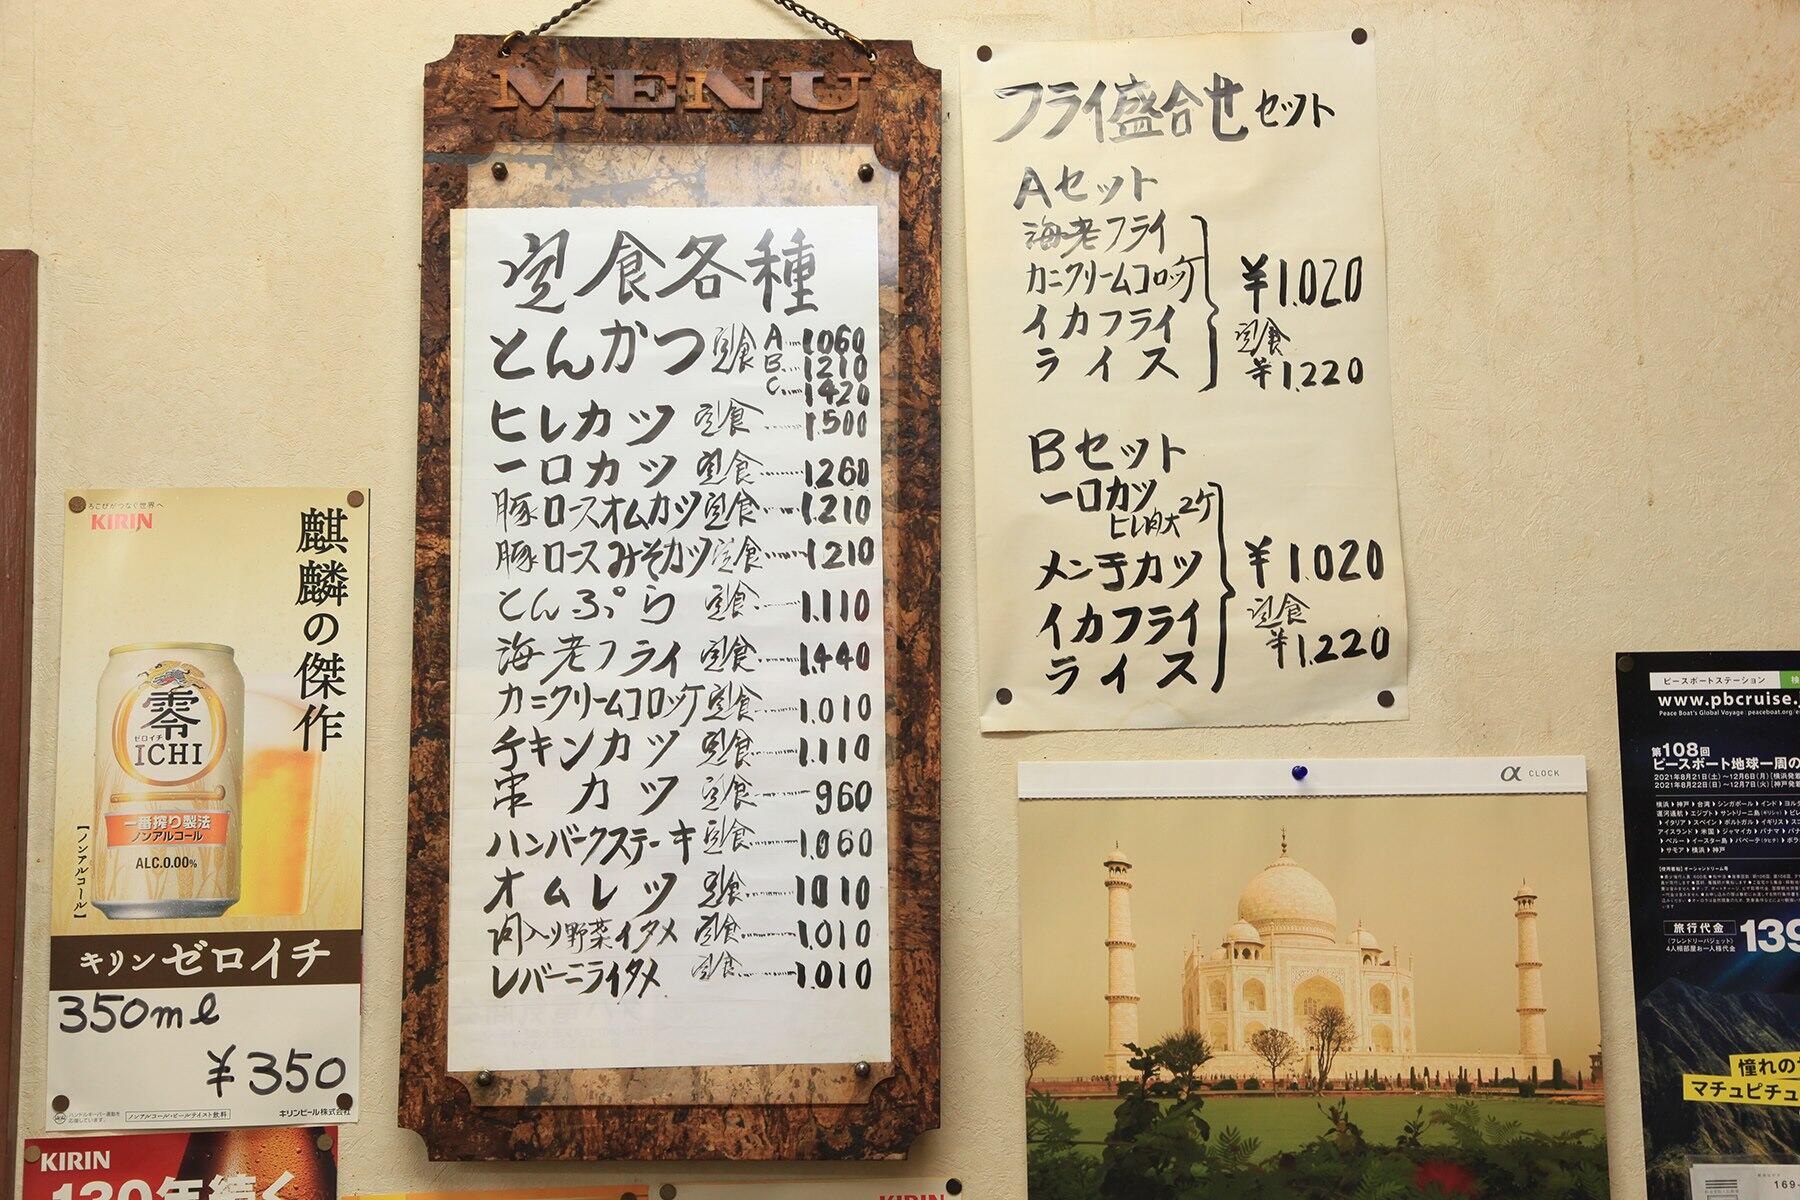 MENU
定食各種
とんかつ定食 A…1060
B…1210
C…1420
ヒレカツ定食……1.500
一口カツ定食……1.260
豚ロースオムカツ定食……1.210
豚ロースみそカツ定食……1210
とんぷら定食……1.110
海老フライ定食……1.440
カニクリームコロッケ定食……1.010
チキンカツ定食……1.110
串カツ定食……960
ハンバークステーキ定食……1.060
オムレツ定食……1010
肉入り野菜イタメ定食……1.010
レバーニライタメ定食……1.010
フライ盛合せセット
Aセット
海老フライ
カニクリームコロッケ
イカフライ
ライス
¥1.020
定食
¥1.220
Bセット
一口カツ 2ケ
ヒレ肉大
メンチカツ
イカフライ
ライス
¥1.020
定食
¥1.220
ろこびがつなぐ世界へ
KIRIN
麒麟の傑作
零
ゼロイチ
ICHI
一番搾り製法
ノンアルコール
ALC.0.00%
【ノンアルコール】
キリンゼロイチ
350ml
¥350
ハンドルキーパー運動を
応援しています。
ノンアルコール・ビールテイスト飲料
キリンビール株式会社
KIRIN
130年続く
KIRIN
α CLOCK
ピースボートステーション
www.pbcruise.
Peace Boat's Global Voyage : peaceboat.org/
第108回
ピースボート地球一周の
2021年8月21日(土)〜12月6日(月)
2021年8月22日(日)〜12月7日(火)
旅行代金
139
憧れの
マチュピチュ
169-